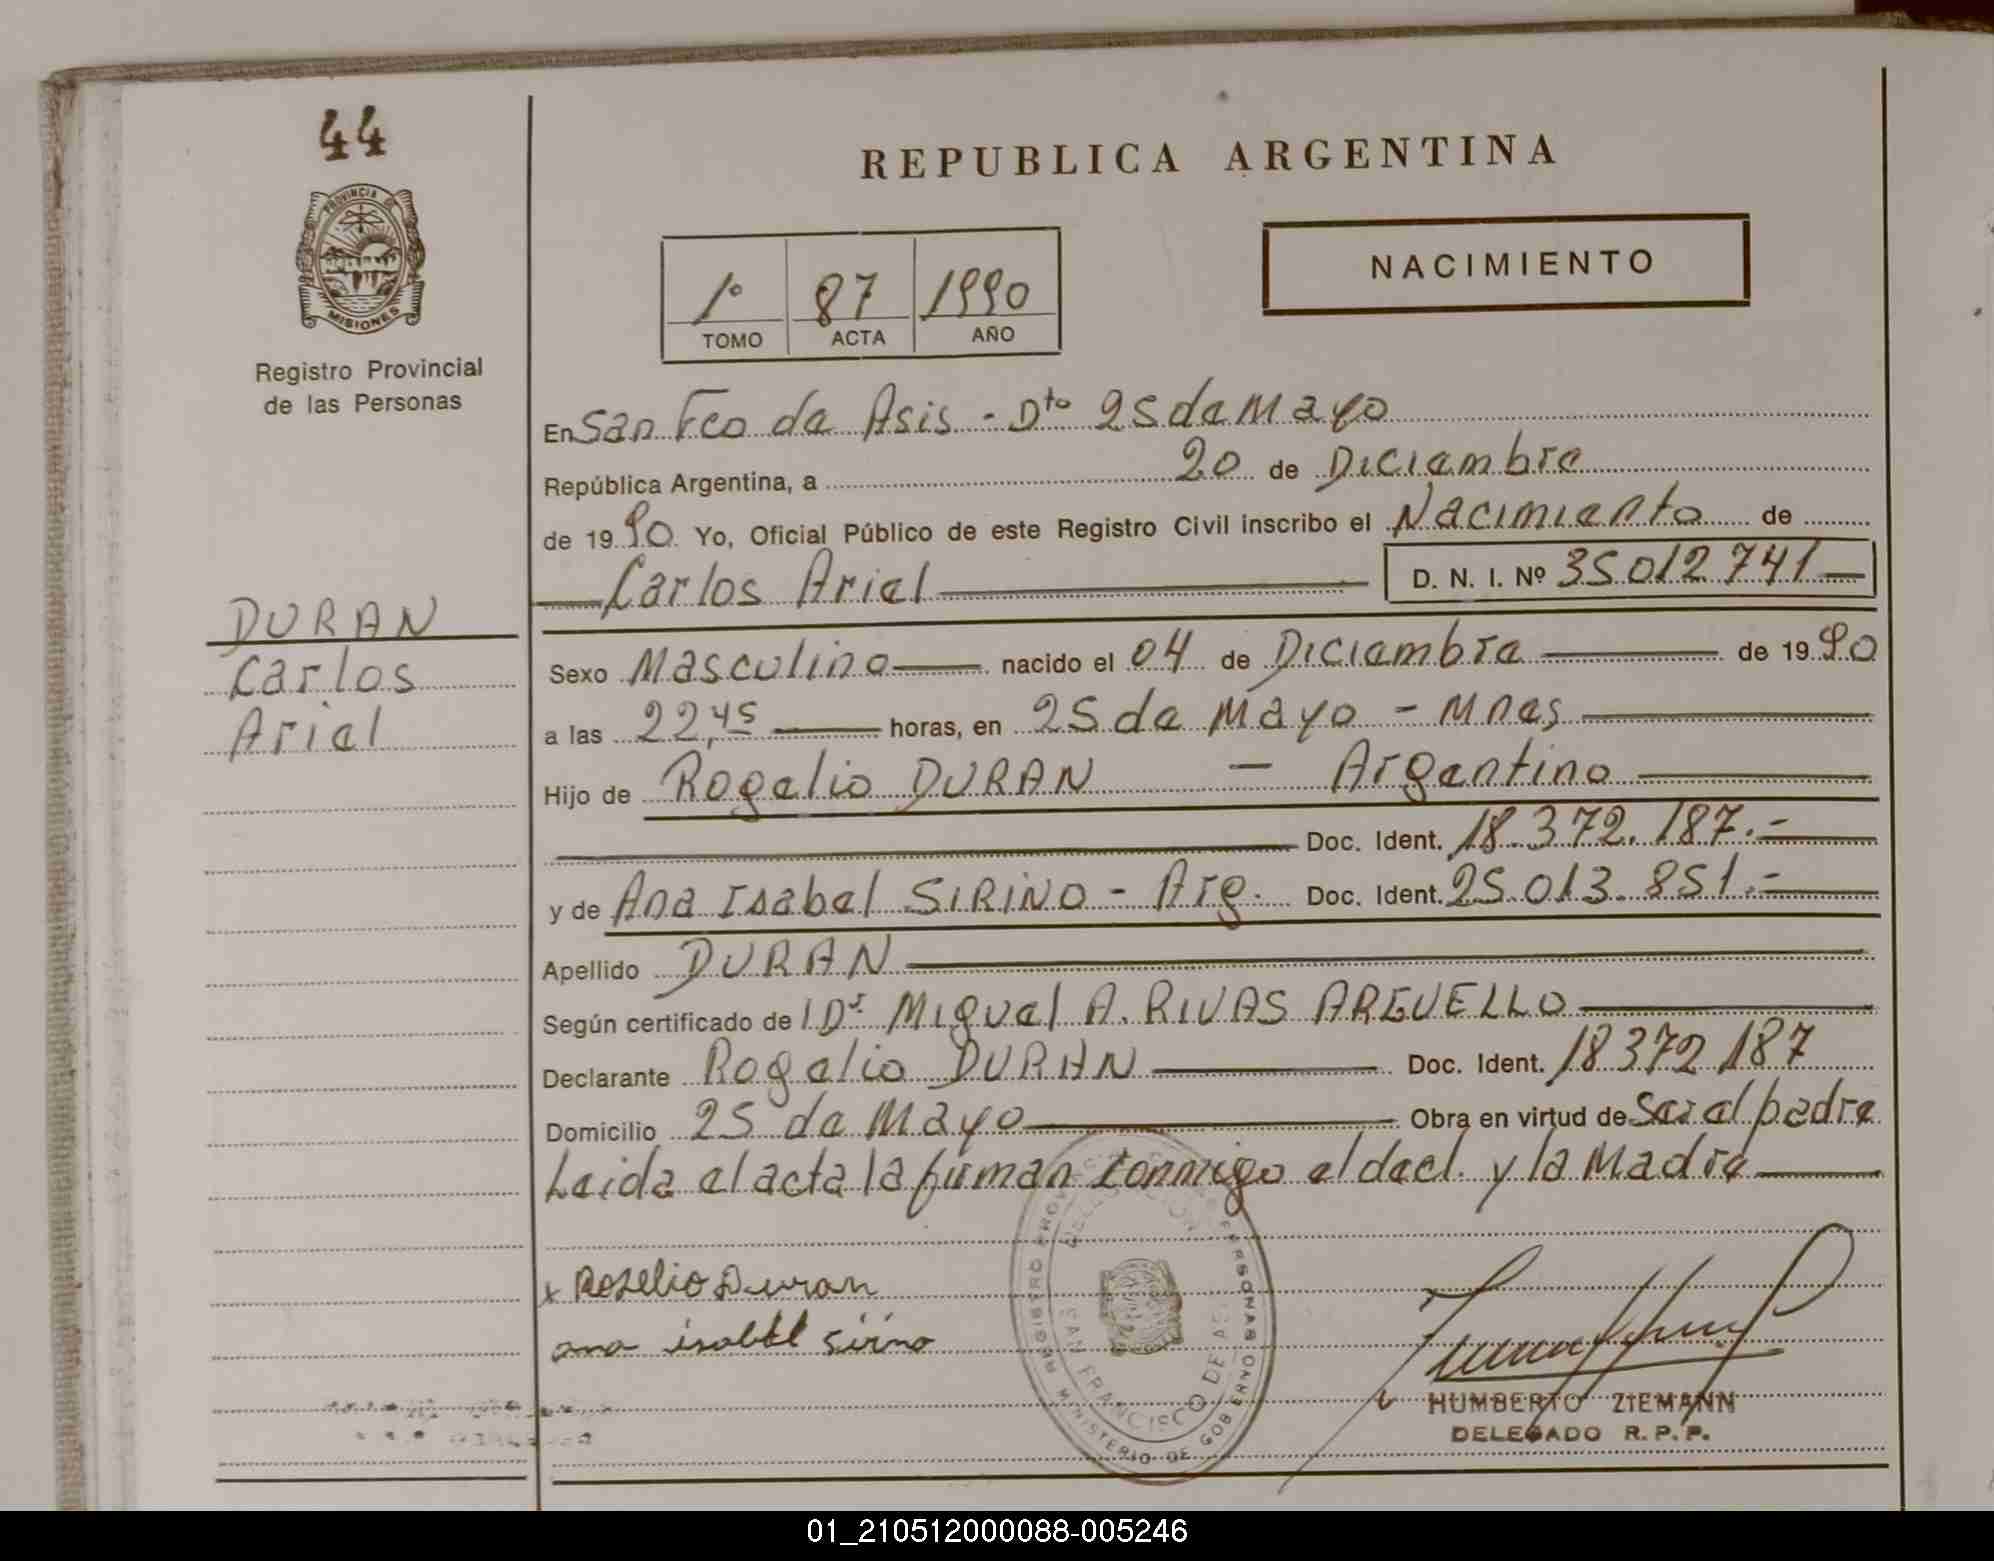 44
PROVINCIA DE
MISIONES
Registro Provincial
de las Personas
DURAN
Carlos
Ariel
REPUBLICA ARGENTINA
1º 87 1990
TOMO ACTA AÑO
NACIMIENTO
En San Fco de Asis - Dto 25 de Mayo
República Argentina, a 20 de Diciembre
de 1990 Yo, Oficial Público de este Registro Civil inscribo el Nacimiento de
Carlos Ariel D. N. I. Nº 35012741
Sexo Masculino nacido el 04 de Diciembre de 1990
a las 22,45 horas, en 25 de Mayo - Mnes
Hijo de Rogelio DURAN - Argentino
Doc. Ident. 18.372.187.-
y de Ana Isabel SIRINO - Arg. Doc. Ident. 25.013.851.-
Apellido DURAN
Según certificado de l Dr. Miguel A. RIVAS AREVELLO
Declarante Rogelio DURAN Doc. Ident. 18372187
Domicilio 25 de Mayo Obra en virtud de Ser el padre
Leida el acta la firman conmigo el decl. y la Madre
x Rogelio Duran
ana isabel sirino
REGISTRO PROV PERSONAS
SAN FRANCISCO DE ASIS
MINISTERIO DE GOBIERNO
HUMBERTO ZIEMANN
DELEGADO R.P.P.
01_210512000088-005246